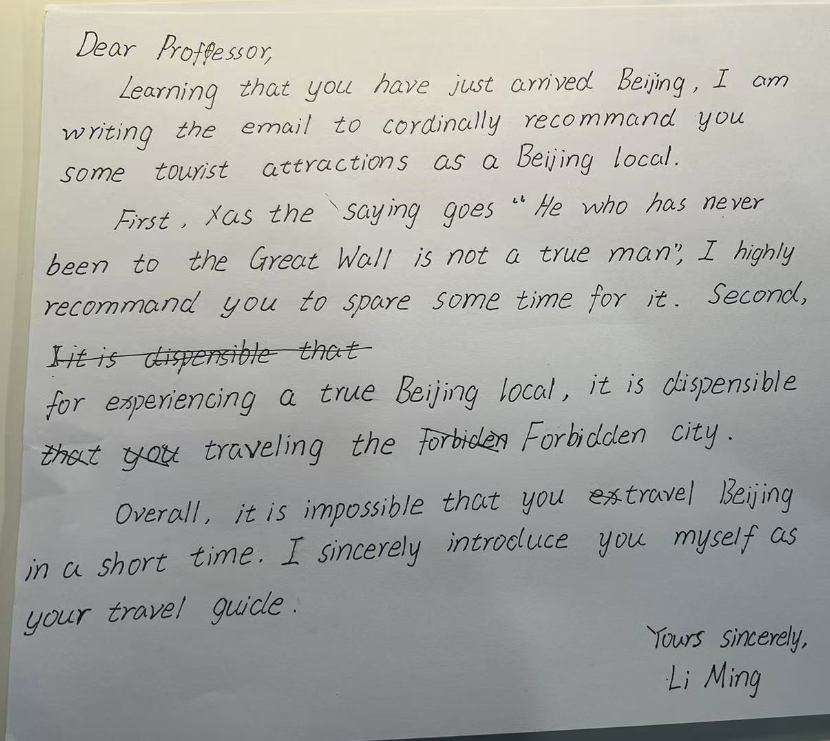 Dear Proffessor,
Learning that you have just arrived Beijing, I am
writing the email to cordinally recommand you
some tourist attractions as a Beijing local.
First, as the saying goes "He who has never
been to the Great Wall is not a true man", I highly
recommand you to spare some time for it. Second,
I it is dispensible that
for experiencing a true Beijing local, it is dispensible
that you traveling the forbiden Forbidden city.
Overall, it is impossible that you ex travel Beijing
in a short time. I sincerely introduce you myself as
your travel guide.
Yours sincerely,
Li Ming